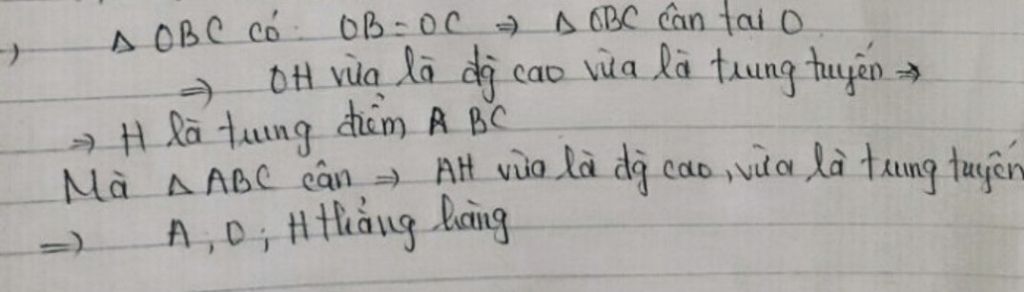 , Δ OBC có: OB = OC ⇒ Δ OBC cân tại O
⇒ OH vừa là đg cao vừa là trung tuyến →
⇒ H là trung điểm A BC
Mà Δ ABC cân ⇒ AH vừa là đg cao, vừa là trung tuyến
⇒ A, O, H thẳng hàng